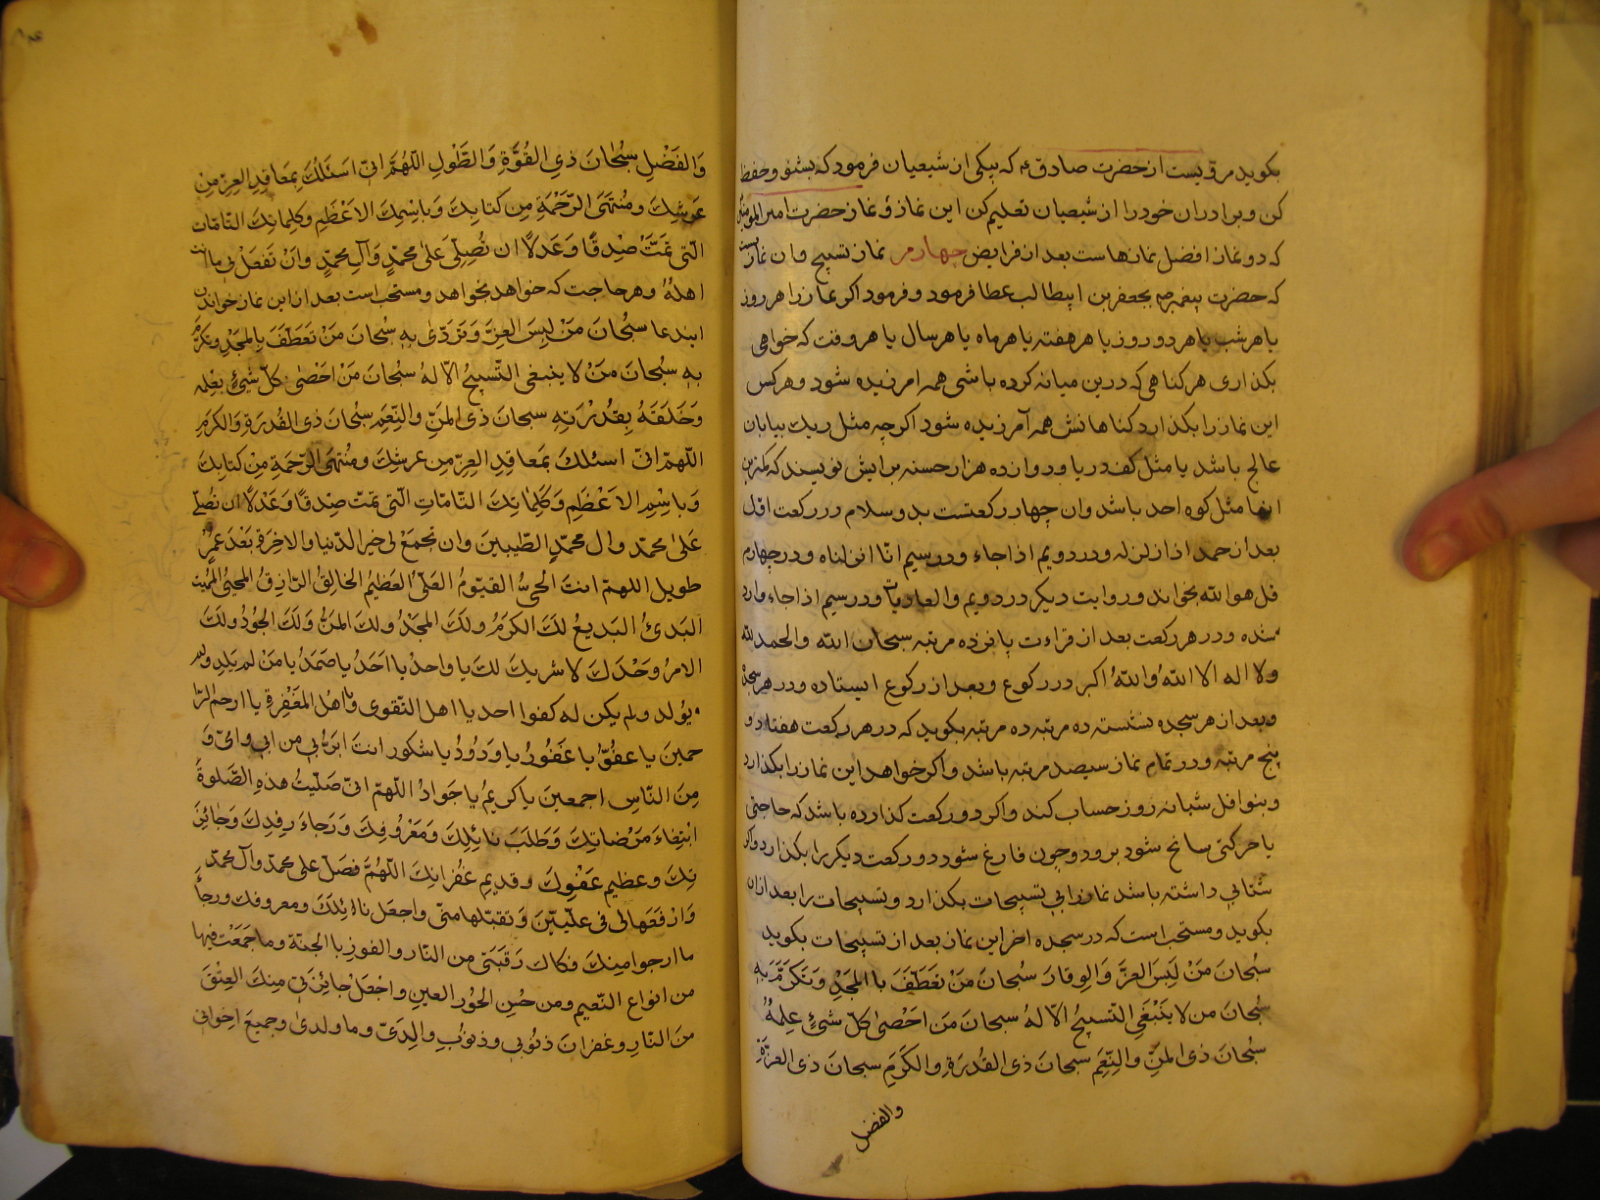 بکوید مرویست از حضرت صادق ع که بیکی از شیعیان فرمود که بشنو و حفظ
کن و برادران خود را از شیعیان تعلیم کن این نماز و نماز حضرت امیر المومنین
که دو نماز افضل نمازهاست بعد از فرایض چهارم نماز تسبیح و آن نمازیست
که حضرت پیغمبر ص بجعفر بن ابیطالب عطا فرمود و فرمود اکر نماز را هر روز
یا هر شب یا هر دو روز یا هر هفته یا هر ماه یا هر سال یا هر وقت که خواهی
بکذاری هر کناهی که درین میانه کرده باشی همه امرزیده شود و هر کس
این نماز را بکذارد کناهانش همه آمرزیده شود اکرچه مثل ریک بیابان
عالج باشد یا مثل کف دریا و دوازده هزار حسنه برایش نویسند که کمترین
انها مثل کوه احد باشد و ان چهار رکعتست بدو سلام در رکعت اول
بعد از حمد اذا زلزله و در دویم اذا جاء و در سیم انا انزلناه و در چهارم
قل هو الله بخواند و روایت دیکر در دویم والعادیات و در سیم اذا جاء وارد
شده و در هر رکعت بعد از قراءت پانزده مرتبه سبحان الله والحمد لله
ولا اله الا الله والله اکبر در رکوع و بعد از رکوع ایستاده و در هر سجده
و بعد از هر سجده نشسته ده مرتبه ده مرتبه بکوید که در هر رکعت هفتاد و
پنج مرتبه و در تمام نماز سیصد مرتبه باشد و اکر خواهد این نماز را بکذارد
و بنوافل شبانه روز حساب کند و اکر دو رکعت کذارده باشد که حاجتی
یا حرکتی سانح شود برود و چون فارغ شود دو رکعت دیکر را بکذارد و اکر
شتابی داشته باشد نماز را بی تسبیحات بکذارد و تسبیحات را بعد از ان
بکوید و مستحب است که در سجده اخر این نماز بعد از تسبیحات بکوید
سُبحانَ مَنْ لَبِسَ العِزَّ وَالوِقارَ سُبحانَ مَنْ تَعَطَّفَ بِالمَجْدِ وَتَکَرَّمَ بِهِ
سُبحانَ مَن لا یَنْبَغِی التَّسبیحُ اِلّا لَهُ سبحانَ مَن اَحْصیٰ کلّ شیءٍ عِلمُهُ
سُبحانَ ذِی المَنِّ والنِّعَمِ سبحانَ ذی القُدرَةِ والکَرَمِ سبحانَ ذی العِزَّةِ
والفضل
وَالفَضْلِ سُبْحانَ ذِی القُوَّةِ وَالطَّولِ اللّهُمَّ انّی اَسئَلُکَ بِمَعاقِدِ العِزِّ مِن
عَرشِکَ ومُنتَهَی الرَّحْمَةِ مِن کتابِکَ وَبِاسْمِکَ الاَعْظَمِ وکلِماتِکَ التّامّات
الّتی تَمَّتْ صِدقًا وَعَدلاً ان تُصَلِّیَ عَلی محمّدٍ وَآلِ محمّدٍ وَانْ تَفعَلْ بی ما انت
اهلهُ و هر حاجت که خواهد بخواهد و مستحب است بعد از این نماز خواندن
ایندعا سُبحانَ مَنْ لَبِسَ العِزَّ وَتَرَدّیٰ بِهِ سُبحانَ مَنْ تَعَطَّفَ بِالمَجْدِ وتکَرَّمَ
بِهِ سُبحانَ مَنْ لا ینبغی التّسبیحُ الّا لهُ سُبحانَ مَنْ اَحْصیٰ کلّ شیءٍ بعِلمِه
وَخَلَقَهُ بِقُدْرَتِهِ سبحانَ ذی المَنِّ والنِّعَمِ سُبحانَ ذی القُدرَةِ وَالکَرَمِ
اللّهمّ انّی اسئلکَ بِمَعاقِدِ العِزِّ مِن عرشِکَ ومُنتَهَی الرّحمَةِ مِنْ کتابِکَ
وَباسْمِکَ الاَعْظَمِ وَکَلِماتِکَ التّامّاتِ الّتی تمّتْ صِدقًا وَعَدْلًا ان تُصَلّی
عَلیٰ محمّد وال محمّدٍ الطّیبینَ وان تجمَعَ لی خیرَ الدّنیا والاخِرَةِ بَعْدَ عمرٍ
طویل اللهمّ انتَ الحیُّ القیّومُ العَلیُّ العَظیمُ الخالِقُ الرّازِقُ المُحیی المُمیت
البَدیءُ البَدیعُ لکَ الکرَمُ ولکَ المجدُ ولکَ المنُّ وَلکَ الجُودُ ولکَ
الامرُ وحْدَکَ لا شریکَ لکَ یا واحدُ یا اَحَدُ یا صَمَدُ یا مَنْ لم یَلِد ولم
یُولد ولم یکن له کفوا احد یا اهل التّقوی ویا اهلَ المَغْفِرةِ یا ارحم الرّا
حمینَ یا عفُوُّ یا غَفُورُ یا وَدُودُ یا شکور انتَ ابَرُّ بی من ابی وامّی وَ
مِنَ النّاسِ اجمعینَ یا کریمُ یا جَوادُ اللّهمّ انّی صَلّیتُ هذهِ الصَّلوةَ
ابْتِغاءَ مَرْضاتِکَ وَطَلَبَ نائِلِکَ وَمَعْرُوفِکَ وَرَجاءَ رِفدِکَ وَجائِزَ
تِکَ وعظیمِ عَفْوِکَ وقدیمِ غُفرانِکَ اللّهُمَّ فصَلّ علی محمّد وآل محمّد
وَارْفَعَها لی فی علّیّینَ وتقبّلها منّی واجعَل نائِلکَ ومعروفک ورجاءَ
ما ارجوا منکَ فکاکَ رَقَبَتی من النّار والفوز بالجنّة وما جَمَعْتَ فیها
من انواعِ النّعیم ومن حُسنِ الحُورِ العین واجْعَلْ جائزَتی منکَ العِتْقَ
منَ النّارِ وغفرانَ ذنُوبی وذنُوبِ والِدَیَّ وما ولدیٰ وجمیعَ اخوانی